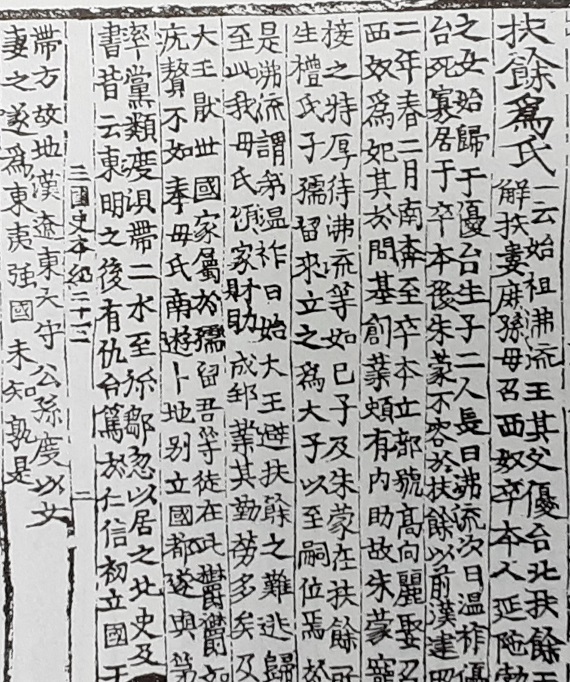 扶餘爲氏
一云始祖沸流王其父優台北扶餘王
解扶婁庶孫母召西奴卒本人延陁勃
之女始歸于優台生子二人長曰沸流次曰温祚優
台死寡居于卒本後朱蒙不容於扶餘以前漢建昭
二年春二月南奔至卒本立都號髙句麗娶召
西奴爲妃其於開基創業頗有内助故朱蒙寵
接之特厚待沸流等如己子及朱蒙在扶餘所
生禮氏子孺留來立之爲大子以至嗣位焉於
是沸流謂弟温祚曰始大王避扶餘之難逃歸
至此我母氏傾家財助成邦業其勤勞多矣及
大王厭世國家屬於孺留吾等徒在此鬱鬱如
疣贅不如奉母氏南遊卜地别立國都遂與弟
率黨類度浿帶二水至弥鄒忽以居之北史及
書皆云東明之後有仇台篤於仁信初立國于
三國史本紀二十三 二
帶方故地漢遼東太守公孫度以女
妻之遂爲東夷強國未知孰是